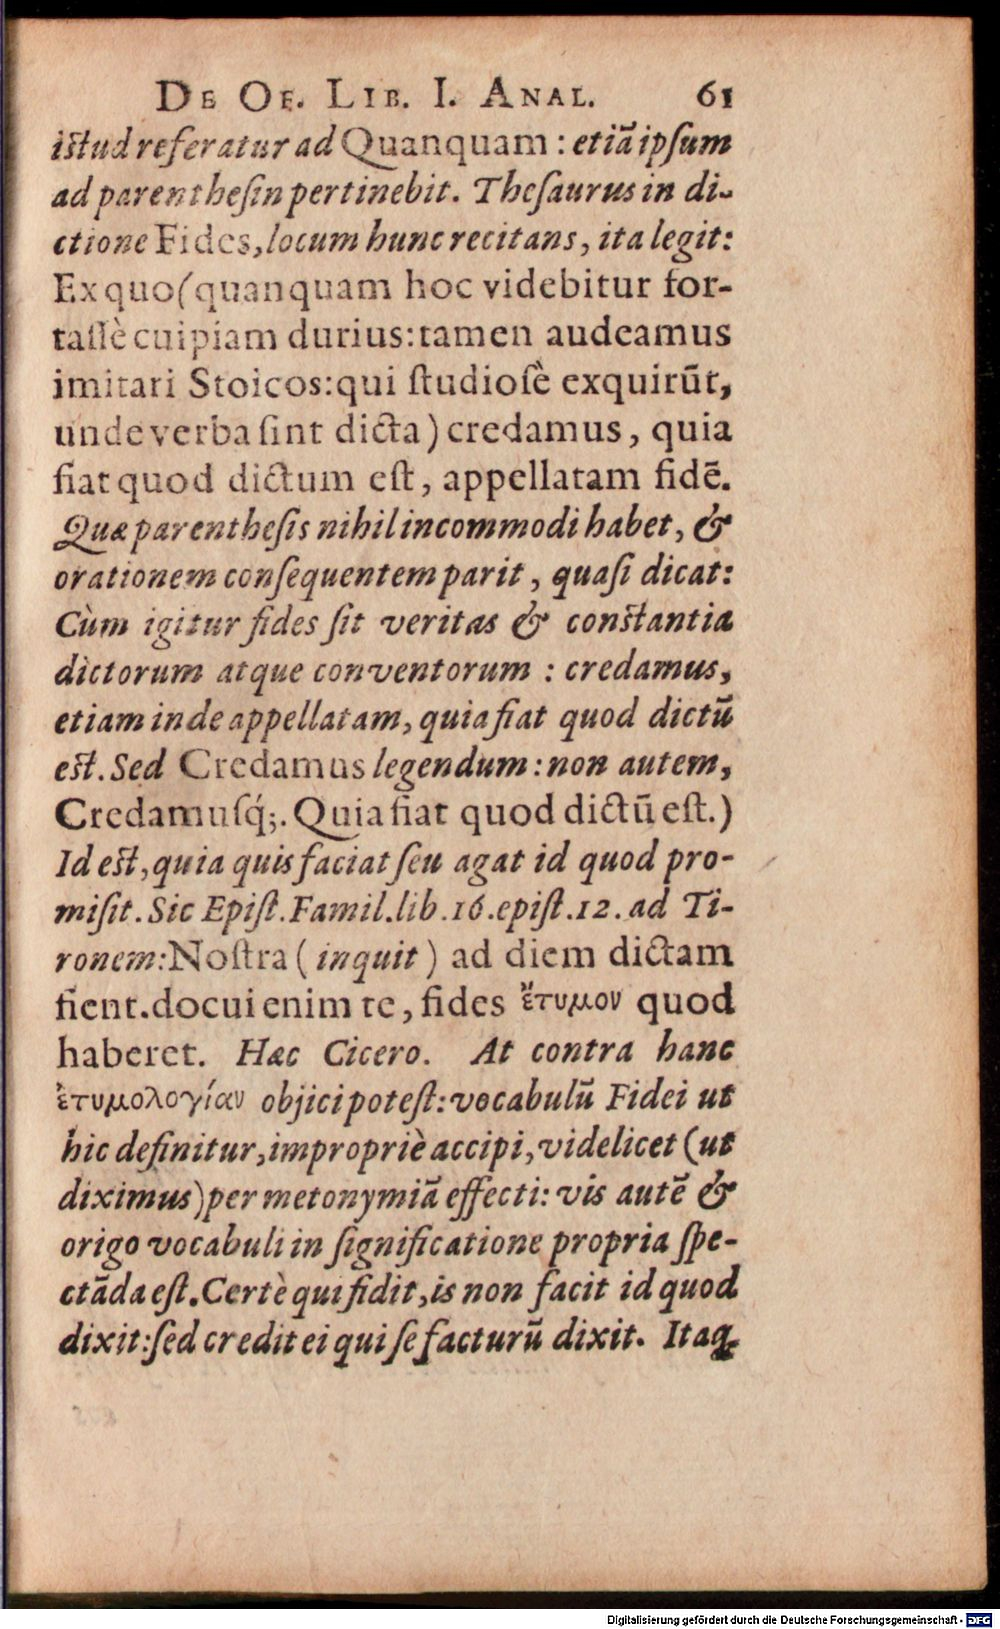 DE OF. LIB. I. ANAL. 61
istud referatur ad Quanquam : etiā ipſum
ad parentheſin pertinebit. Theſaurus in di-
ctione Fides, locum hunc recitans, ita legit:
Ex quo (quanquam hoc videbitur for-
taſſè cuipiam durius: tamen audeamus
imitari Stoicos: qui ſtudioſè exquirūt,
unde verba ſint dicta) credamus, quia
fiat quod dictum eſt, appellatam fidē.
Quæ parentheſis nihil incommodi habet, &
orationem conſequentem parit, quaſi dicat:
Cùm igitur fides ſit veritas & conſtantia
dictorum atque conventorum : credamus,
etiam inde appellatam, quia fiat quod dictū
eſt. Sed Credamus legendum: non autem,
Credamuſq́;. Quia fiat quod dictū eſt.)
Id eſt, quia quis faciat ſeu agat id quod pro-
miſit. Sic Epiſt. Famil. lib. 16. epiſt. 12. ad Ti-
ronem: Noſtra (inquit) ad diem dictam
fient. docui enim te, fides ἔτυμον quod
haberet. Hæc Cicero. At contra hanc
ἐτυμολογίαν objici poteſt: vocabulū Fidei ut
hic definitur, impropriè accipi, videlicet (ut
diximus) per metonymiā effecti: vis autē &
origo vocabuli in ſignificatione propria ſpe-
ctāda eſt. Certè qui fidit, is non facit id quod
dixit: ſed credit ei qui ſe facturū dixit. Itaq;
Digitalisierung gefördert durch die Deutsche Forschungsgemeinschaft - DFG